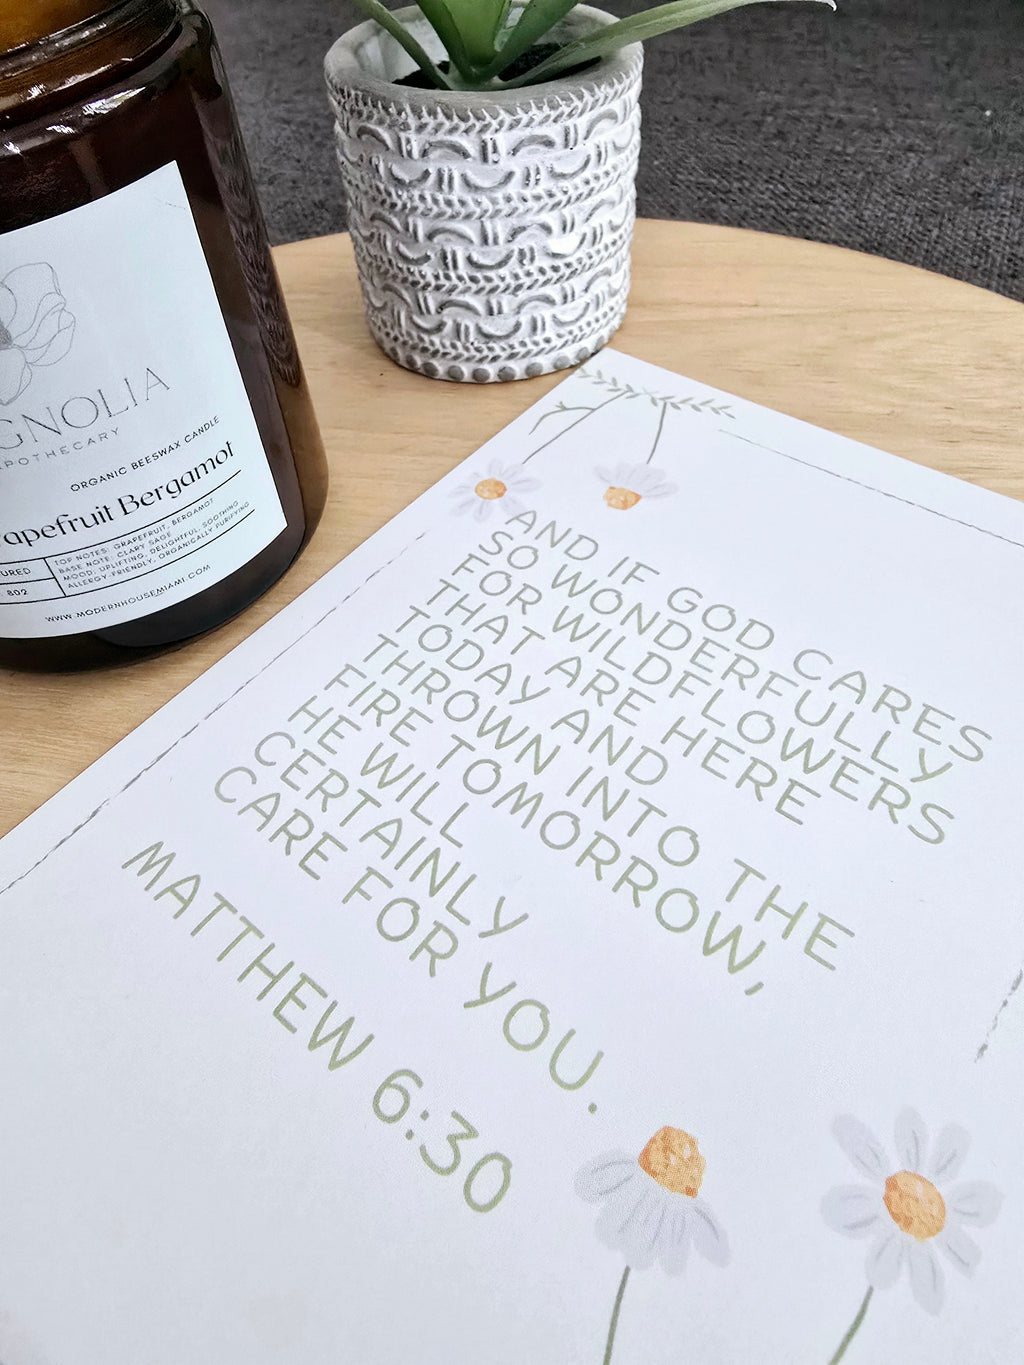 GNOLIA
APOTHECARY
ORGANIC BEESWAX CANDLE
rapefruit Bergamot
TOP NOTES: GRAPEFRUIT, BERGAMOT
BASE NOTE: CLARY SAGE
MOOD: UPLIFTING, DELIGHTFUL, SOOTHING
ALLERGY-FRIENDLY, ORGANICALLY PURIFYING
URED
802
WWW.MODERNHOUSEMIAMI.COM
AND IF GOD CARES
SO WONDERFULLY
FOR WILDFLOWERS
THAT ARE HERE
TODAY AND
THROWN INTO THE
FIRE TOMORROW,
HE WILL
CERTAINLY
CARE FOR YOU.
MATTHEW 6:30